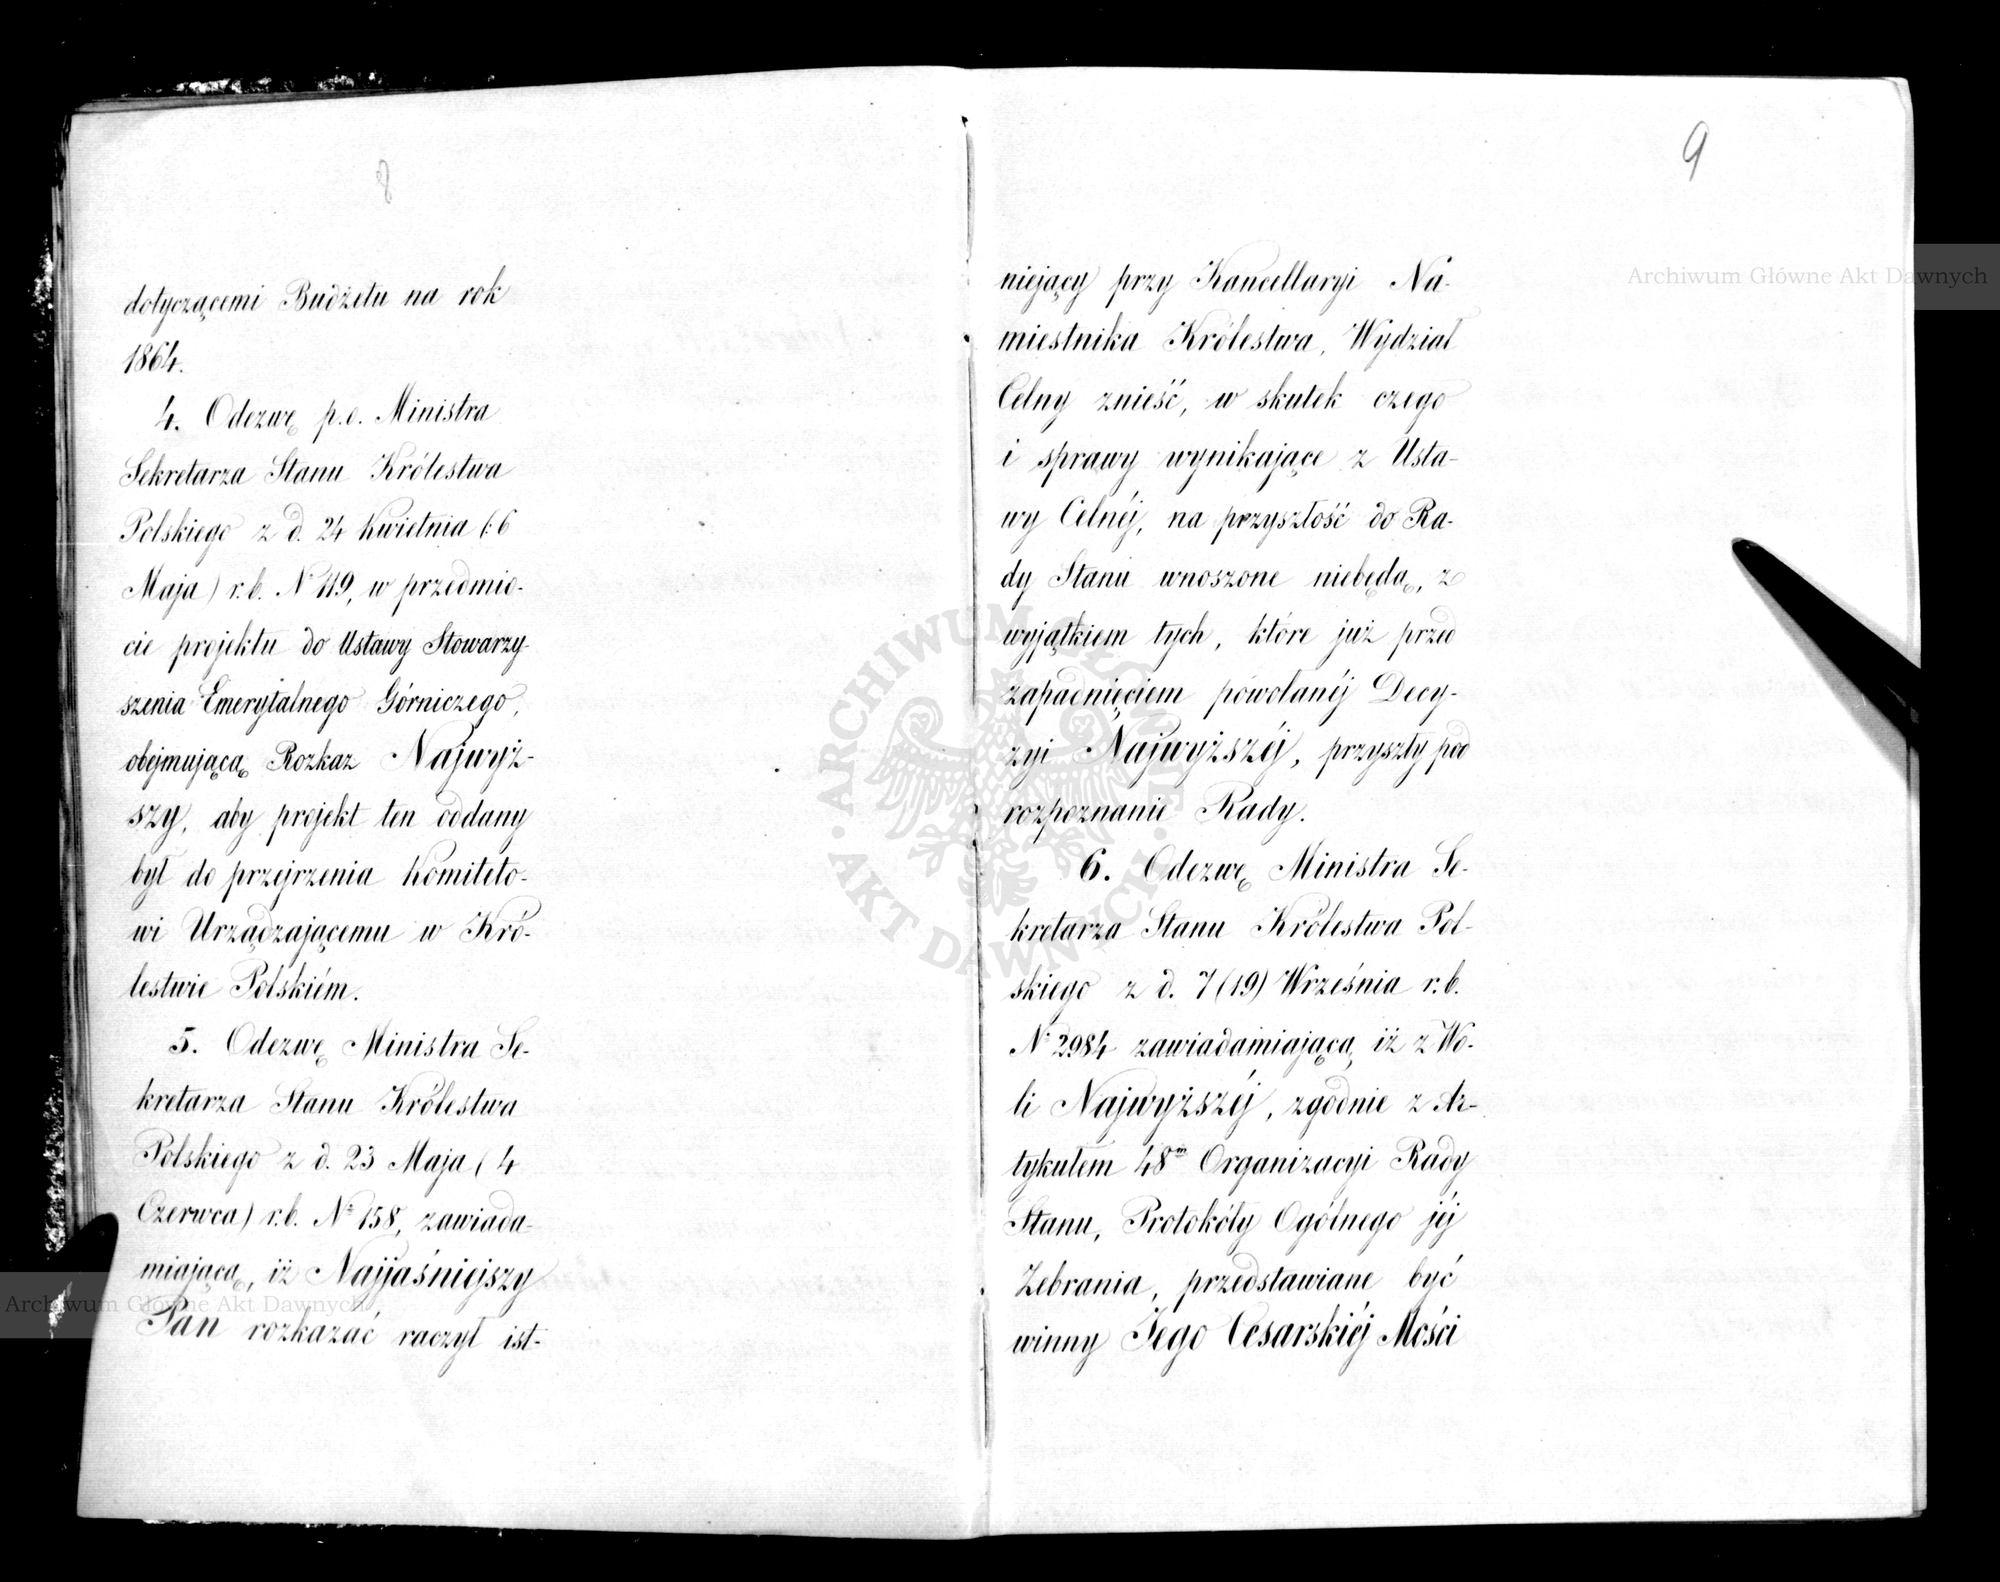 8
dotyczącemi Budżetu na rok
1864.
4. Odezwę p.o. Ministra
Sekretarza Stanu Królestwa
Polskiego z d. 24 Kwietnia (:6
Maja) r.b. N 119, w przedmio-
cie projektu do Ustawy Stowarzy-
szenia Emerytalnego Górniczego,
obejmującą Rozkaz Najwyż-
szy, aby projekt ten oddany
był do przejrzenia Komiteto-
wi Urządzającemu w Kró-
lestwie Polskiém.
5. Odezwę Ministra Se-
kretarza Stanu Królestwa
Polskiego z d. 23 Maja (4
Czerwca) r.b. N 158, zawiada-
miającą, iż Najjaśniejszy
Pan rozkazać raczył ist-
9
niejący przy Kancellaryi Na-
miestnika Królestwa, Wydział
Celny znieść, w skutek czego
i sprawy wynikające z Usta-
wy Celnéj, na przyszłość do Ra-
dy Stanu wnoszone niebędą, z
wyjątkiem tych, które już przed
zapadnięciem powołanéj Decy-
zyi Najwyższéj, przyszły pod
rozpoznanie Rady.
6. Odezwę Ministra Se-
kretarza Stanu Królestwa Pol-
skiego z d. 7 (19) Września r.b.
N 2984 zawiadamiającą, iż z Wo-
li Najwyższéj, zgodnie z Ar-
tykułem 48m Organizacyi Rady
Stanu, Protokóły Ogólnego jéj
Zebrania, przedstawiane być
winny Jego Cesarskiéj Mości
Archiwum Główne Akt Dawnych
Archiwum Główne Akt Dawnych
ARCHIWUM GŁÓWNE
AKT DAWNYCH